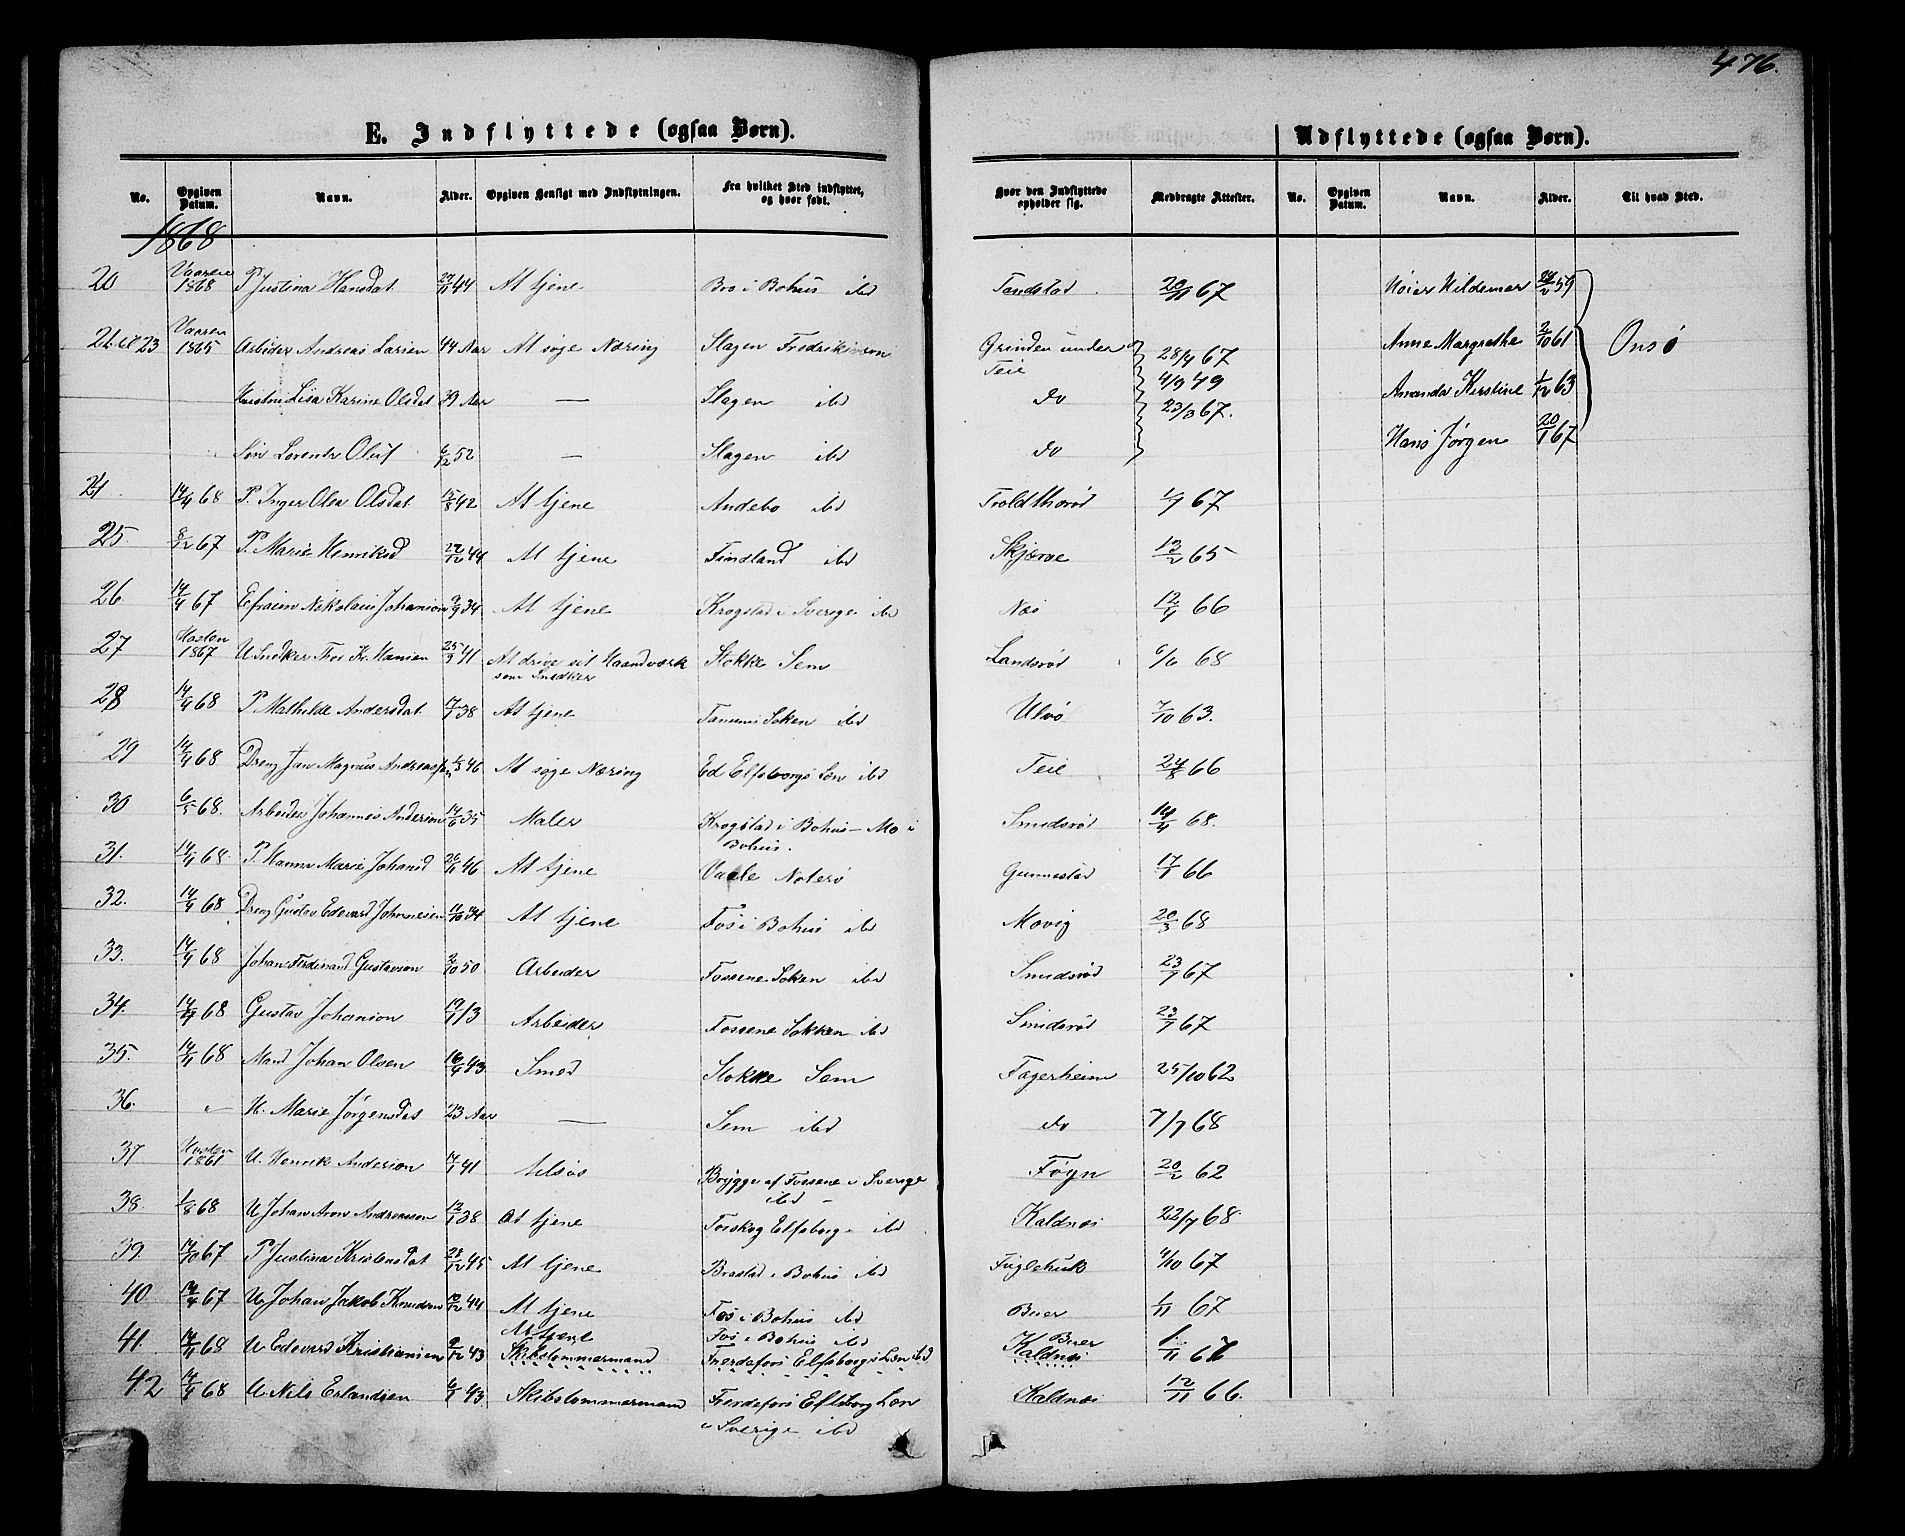 476.
E. Indflyttede (ogsaa Børn). Udflyttede (ogsaa Børn).
No. Opgiven Datum. Navn. Alder. Opgiven Hensigt med Indflytningen. Fra hvilket Sted indflyttet, og hvor født. Hvor den Indflyttede opholder sig. Medbragte Attester. No. Opgiven Datum. Navn. Alder. Til hvad Sted.
1868
20 Vaaren 1868 P. Justina Hansdat. 44 At tjene Bro i Bohus ibd 20/11 67 Hildemar 59
23 Vaaren 1865 Arbeider Andreas Larsen 44 Aar At søge Næring Slagen Fredriksværn Grinden under Teie 28/4 67 Anne Margrethe 2/10 61 Onsø
Hustru Lisa Karine Olsdat 39 Aar — Slagen ibd do 4/9 49 Amanda Kirstine 1/12 63
23/3 67.
Søn Lorentz Oluf 6/12 52 — Slagen ibd do Hans Jørgen 20/1 67
24 14/4 68 P. Inger Olea Olsdat 15/8 42 At tjene Andebo ibd 67
25. 8/12 67 P. Marie Henriksd 44 At tjene ibd 13/2 65
26 14/4 67 Efraim Nikolaus Johanson 34 At tjene Krogstad i Sverige ibd Næs 12/4 66
27 Høsten 1867 U Snedker Thor Kr. Hansen 25/9 41 At drive sit Haandværk som Snedker Stokke Sem Landsrød 6/6 68
28 14/4 68 P. Mathilde Andersdat. 17/1 38 At tjene Tanums Soken ibd Ulvø 7/10 63.
29 14/4 68 Dreng Jan Magnus Andreassen 46 At søge Næring Ed Elfsborgs Læn ibd Teie 24/8 66
30 6/5 68. Arbeider Johannes Andersen 14/6 35 Maler Krogstad i Bohus – Mo i Bohus. Smidsrød 14/4 68.
31. 14/4 68 P. Hanna Marie Johansd 46 At tjene Vaale Noterø Gunnestad 17/1 66
32. 14/4 68 Dreng Gustav Edevard Johannesen At tjene Fos i Bohus ibd Movig 20/3 68
33. 14/4 68 Johan Ferdinand Gustavson 2/10 50 Arbeider Fossene Soken ibd Smidsrød 23/1 67
34. 14/4 68 Gustav Johanson Arbeider Fossene Sokken ibd Smidsrød 23/1 67
35. 14/4 68 Mand Johan Olsen 16/4 43 Smed Stokke Sem Fagerheim 25/10 62
36. H. Marie Jørgensdat 23 Aar — Sem ibd do 7/7 68
37 Høsten 1861 U. Henrik Anderson 14/1 41 tilsøs Brygge af Fossene i Sverige ibd – Føyn 20/2 62
38. 1/8 68 U Johan Aron Andreassen 12/1 38 At tjene Torskog Elfsborg ibd Kaldnæs 22/7 68
39 14/10 67 P Justina Kristensdat 28/12 45 At tjene Brastad i Bohus ibd Fuglehuk 4/10 67
40. 14/4 67 U. Johan Jakob Knudsen 10/12 44 At tjene Fos i Bohus ibd Buer 1/11 67
At tjene Fos i Bohus ibd Buer
41. 14/4 68 U Edevard Kristiansen 9/12 43 Skibstømmermand Færdefors Elfsborgs Læn ibd Kaldnæs 1/11 67
42 14/4 68 U Nils Erlandsen 6/1 43 Skibstømmermand Færdefors Elfsborg Læn i Sverige ibd Kaldnæs 12/11 66.